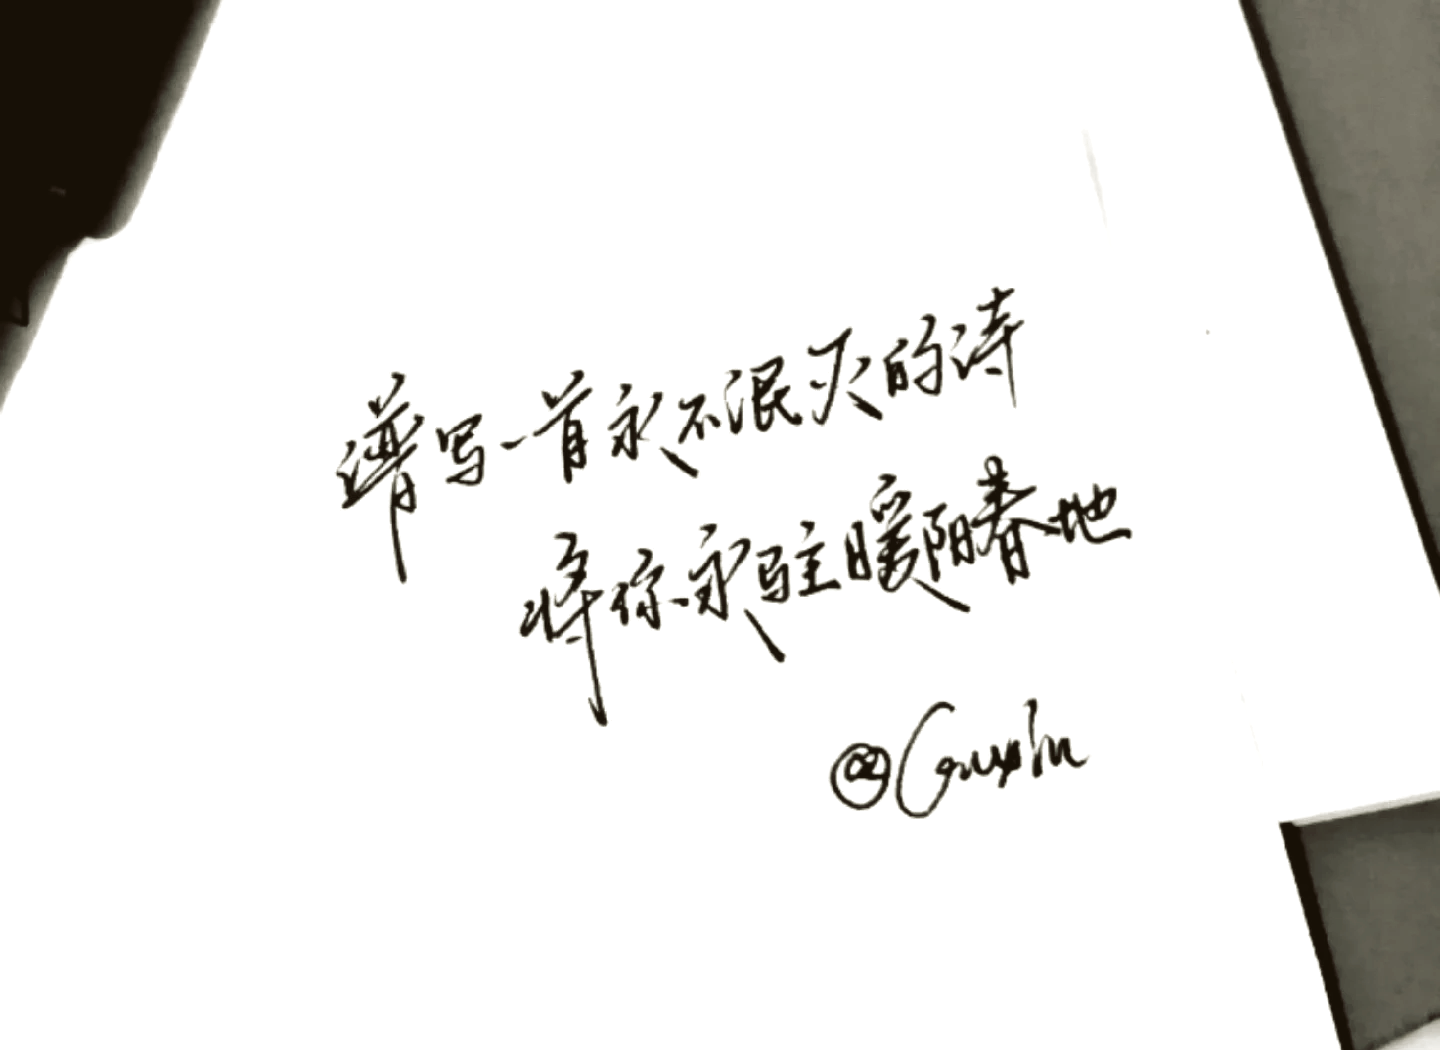 谱写一首永不泯灭的诗
将你永驻暖阳春地